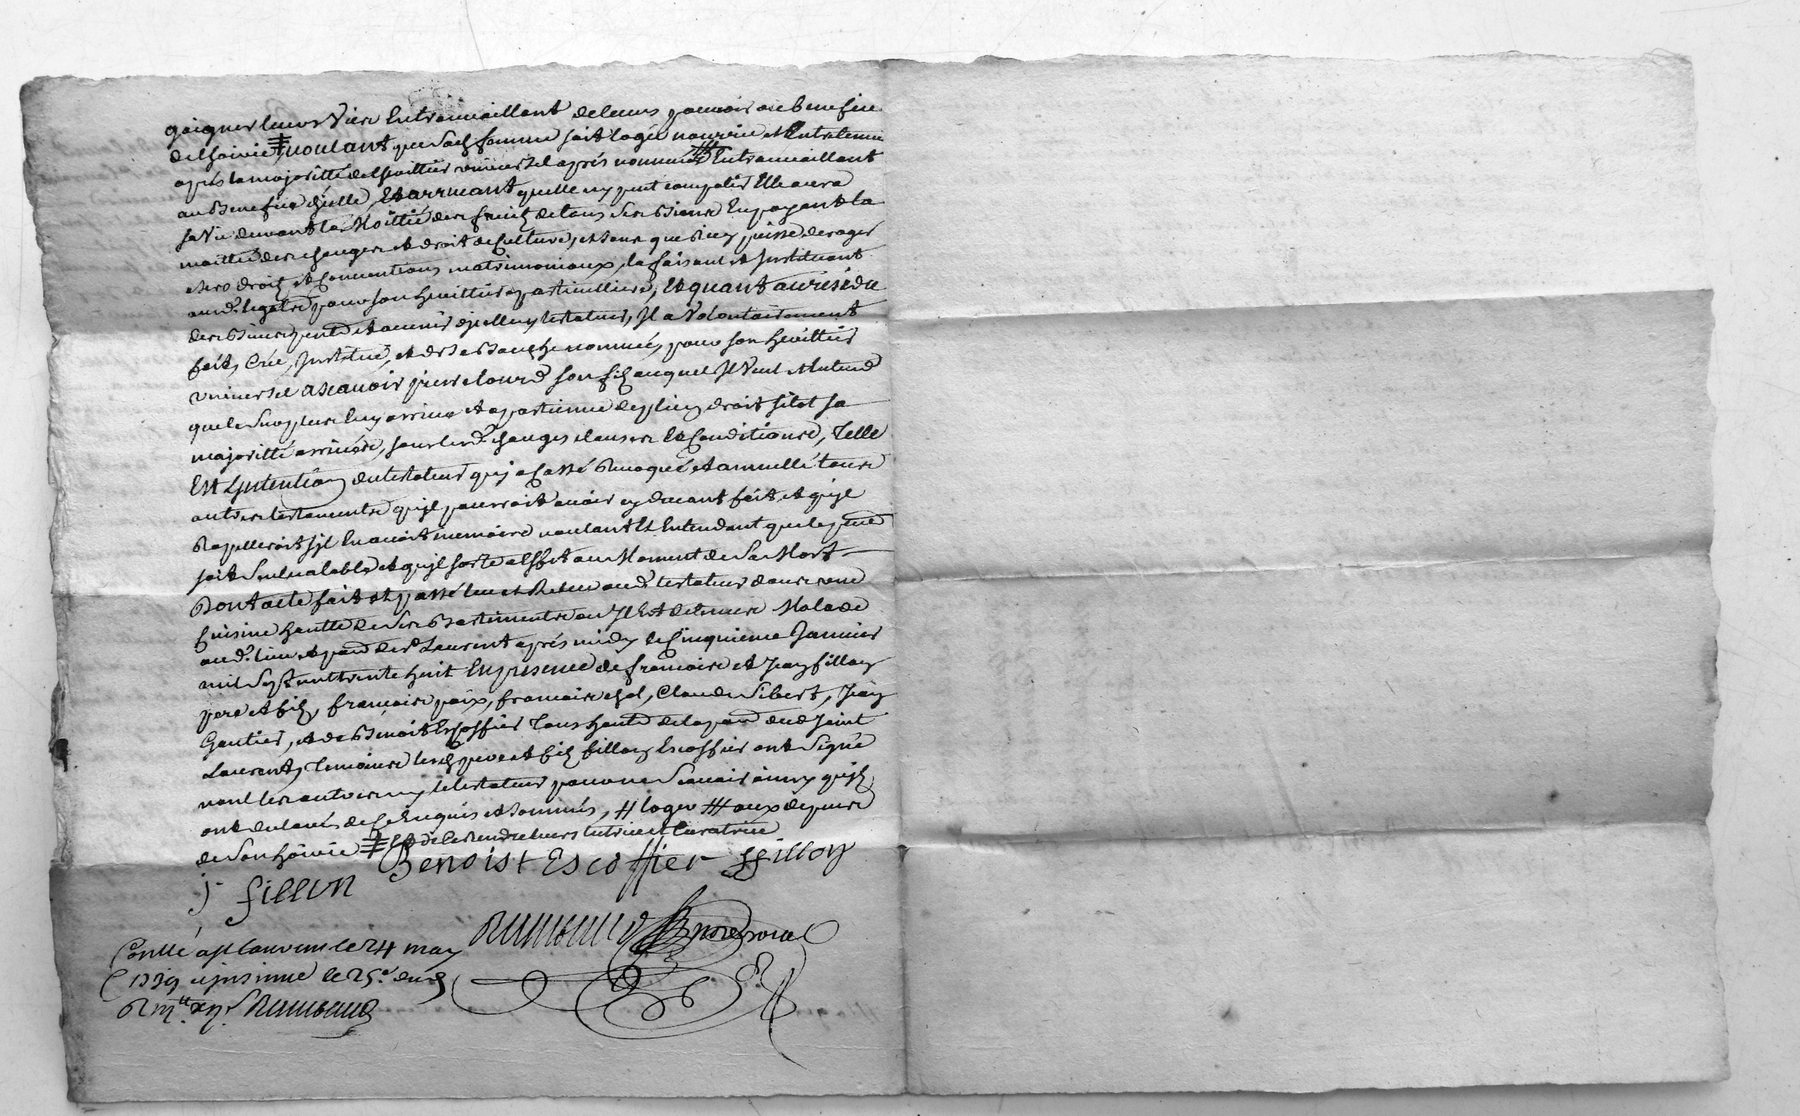 gaigner leurs Vies En travaillant de leurs pouvoir au benefice
de lhoirie voulant que sad femme soit logée nourrie et Entretenue
apres la majoritté de lherittier universel apres nommé En travaillant
au Benefice dicelle, Et arrivant quelle ny peut compatir Elle aura
sa Vie durant la Moittié des fruits de tous ses Biens En payant la
moittié des charges et droit de Culture, et sans que Rien puisse deroger
a ses droits et Conventions matrimoniaux, la faisant et Instituant
aud. legat pour son herittiere particulliere, Et quant au residu
des Biens pnts et avenir dicelluy testateur, Il a Volontairement
fait, Crée, Institué, et de sa Bouche nommé, pour son herittier
universel ascavoir pierre son fils auquel Il Veut et Entend
que le Surplus luy arrive et apartienne de plein droit sitot sa
majoritté arrivée, sous les d. charges clauses Et Conditions, Telle
Est Lintention du testateur quj a Cassé Revoqué et annullé tous
autres testaments quil pourroit avoir cy devant fait, et quil
Rapelleroit sil En avoit memoire voulant Et Entendant que le pnt
soit Seul valable et quil sorte Effet au Moment de Sa Mort
Dont acte fait et passé leu et Releu aud. testateur dans une
Cuisine haulte de Ses Bastiments ou Il Est detenu Malade
aud. lieu et parr de St Laurent apres midy le Cinquieme Janvier
mil Sept cent trente huit En presence de francois et Jean fillon
pere et fils, francois paix, francois chol, Claude Sibert, Jean
Gautier, et de Benoit Escoffier Tous habts de la parr dud Saint
Laurent, Temoins lesd pere et fils fillon Escoffier ont Signé
non les autres ny le testateur pour ne Scavoir ainsy quils
ont declaré de ce Enquis et sommés, # loger ## aux depens
de Son hoirie et de les rendre leurs tutrice et Curatrice
Benoist Escoffier ffillon
j fillon
Conlle a St Lauvens le 24 may
1739 insinué le 25e dud